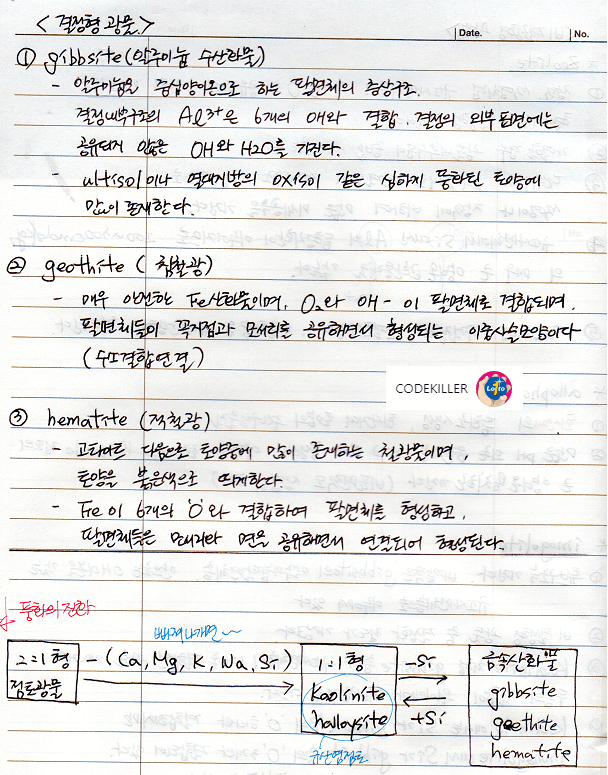 <결정형 광물.>
Date.
No.
① gibbsite (알루미늄 수산화물)
- 알루미늄을 중심양이온으로 하는 팔면체의 층상구조.
결정내부구조의 Al3+은 6개의 OH와 결합. 결정의 외부 표면에는
공유되지 않은 OH와 H2O를 가진다.
- ultisol이나 열대지방의 oxisol 같은 심하게 풍화된 토양에
많이 존재한다.
② geothite ( 침철광)
- 매우 안정한 Fe산화물이며, O2와 OH-이 팔면체로 결합되며,
팔면체들이 꼭지점과 모서리를 공유하면서 형성되는 이중사슬모양이다
(수소결합연결)
CODEKILLER
Lotto
③ hematite (적철광)
- 고타이트 다음으로 토양중에 많이 존재하는 철광물이며,
토양을 붉은색으로 띄게한다.
- Fe이 6개의 'O'와 결합하여 팔면체를 형성하고,
팔면체들은 모서리와 면을 공유하면서 연결되어 형성된다.
풍화의 진행
빠져나가면~
2=1형
점토광물
-(Ca, Mg, K, Na, Si)
1=1형
kaolinite
halloysite
규산염점토
-Si
+Si
금속산화물
gibbsite
geethite
hematite